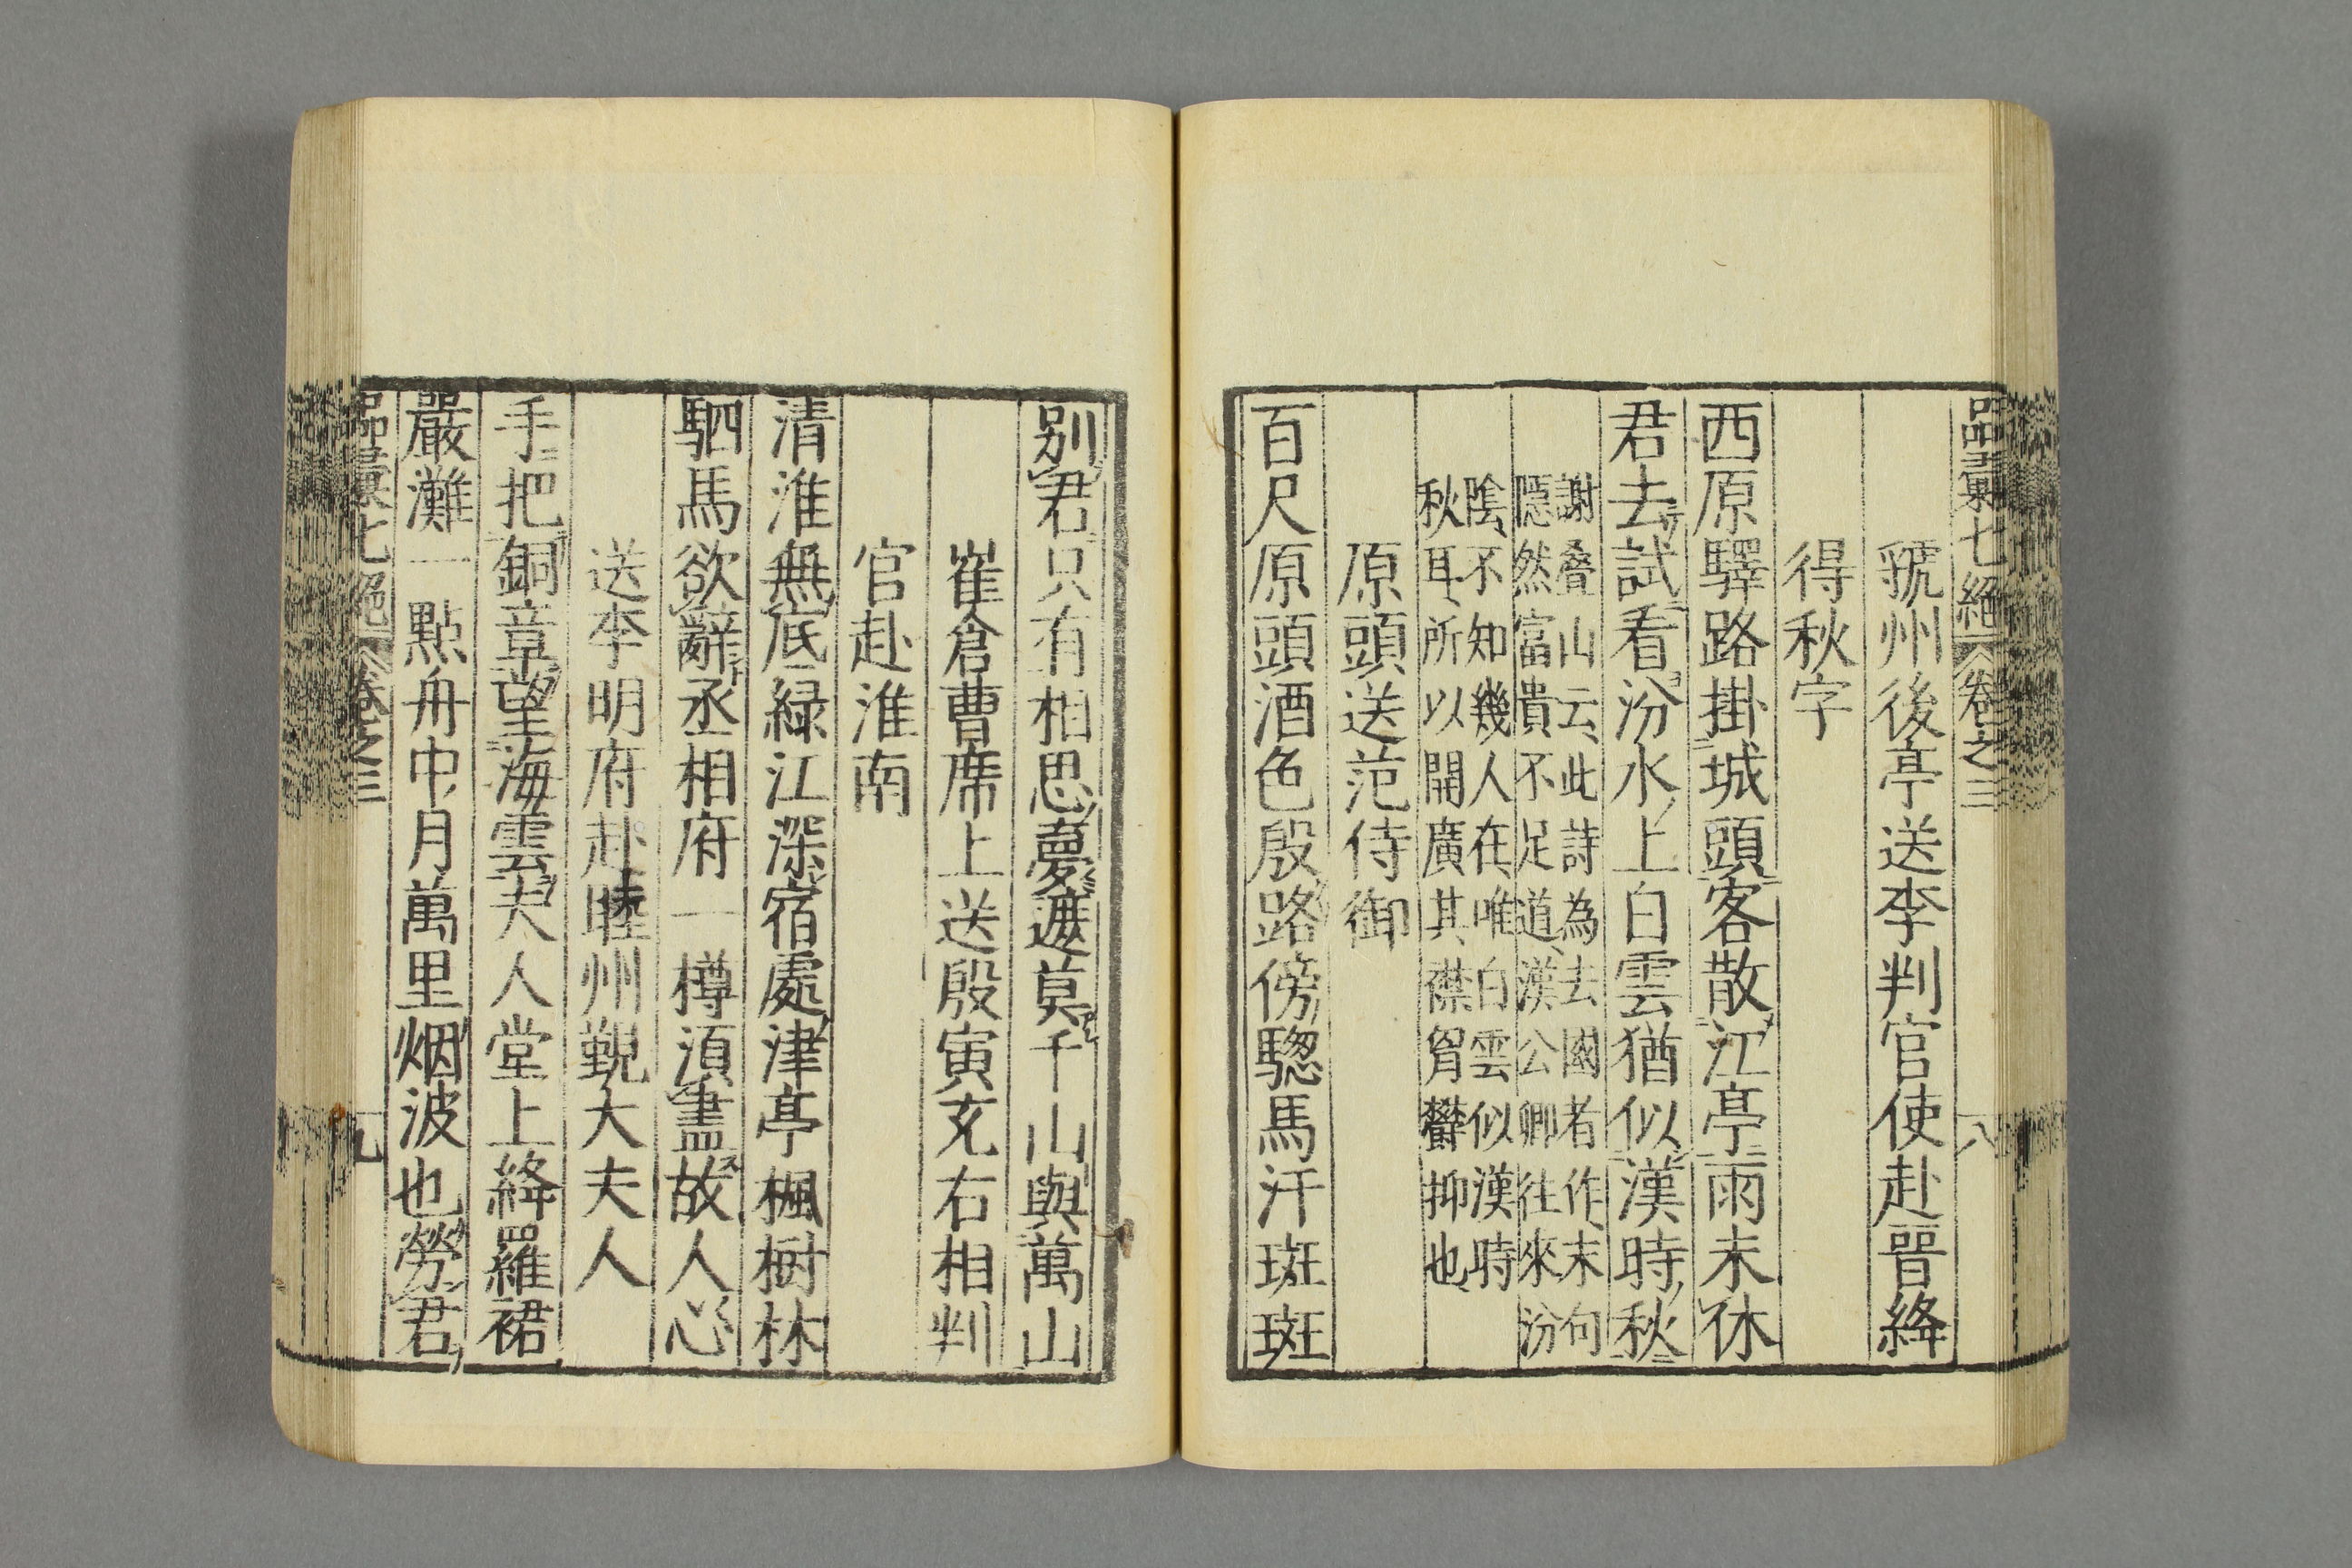 品彙七絶 卷之三 八
虢州後亭送李判官使赴晉絳
得秋字
西原驛路掛城頭客散江亭雨未休
君去試看汾水上白雲猶似漢時秋
謝疊山云此詩為去國者作末句
隠然富貴不足道漢公卿往來汾
陰不知幾人在唯白雲似漢時
秋耳所以開廣其襟胷欝抑也
原頭送范侍御
百尺原頭酒色殷路傍驄馬汗斑斑
别君只有相思夢遮莫千山與萬山
崔倉曹席上送殷寅充右相判
官赴淮南
清淮無底緑江深宿處津亭楓樹林
駟馬欲辭丞相府一樽須盡故人心
送李明府赴睦州覲大夫人
手把銅章望海雲夫人堂上絳羅裙
嚴灘一點舟中月萬里烟波也勞君
品彙七絶 卷之三 九